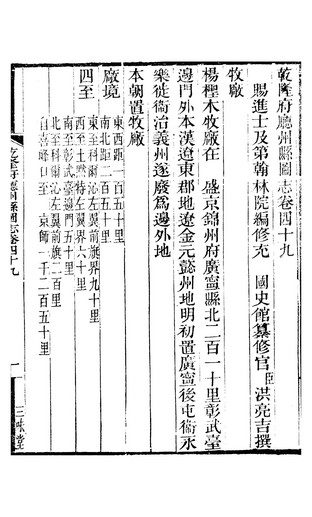 乾隆府廳州縣圖志卷四十九
賜進士及第翰林院編修充　國史館纂修官臣洪亮吉撰
牧廠
楊檉木牧廠在　盛京錦州府廣寧縣北二百一十里彰武臺
邊門外本漢遼東郡地遼金元懿州地明初置廣寧後屯衞永
樂徙衞治義州遂廢爲邊外地
本朝置牧廠
廠境
東西距一百五十里
南北距二百五十里
四至
東至科爾沁左翼前旗界九十里
西至土默特左翼界六十里
南至彰武臺邊門五十里
北至科爾沁左翼前旗二百里
自喜峰口至　京師一千二百五十里
乾隆府廳州縣圖志卷四十九
一
三味堂